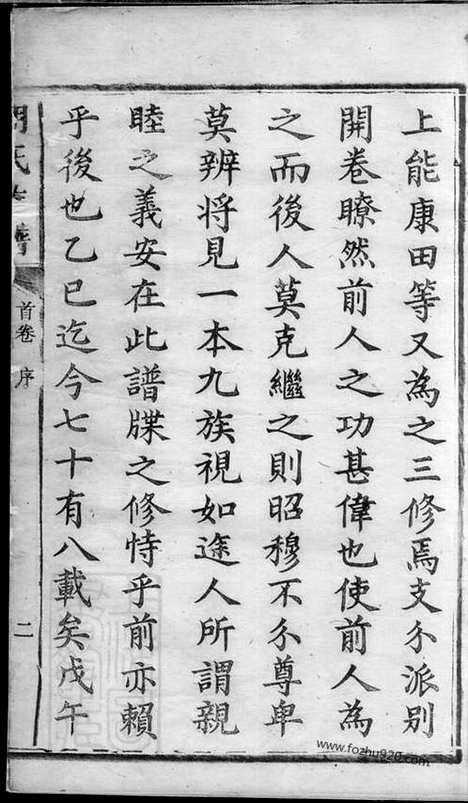 上能康田等又為之三修焉支分派別
開卷瞭然前人之功甚偉也使前人為
之而後人莫克繼之則昭穆不分尊卑
莫辨将見一本九族視如途人所謂親
睦之義安在此譜牒之修恃乎前亦賴
乎後也乙巳迄今七十有八載矣戊午
氏 譜
首卷 序
二
www.fozhu920.com